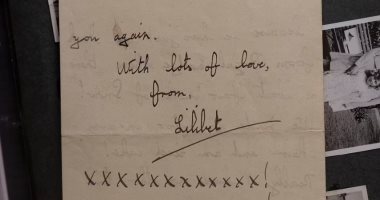 you again.
With lots of love,
from,
Lilibet
xxxxxxxxxxxx!